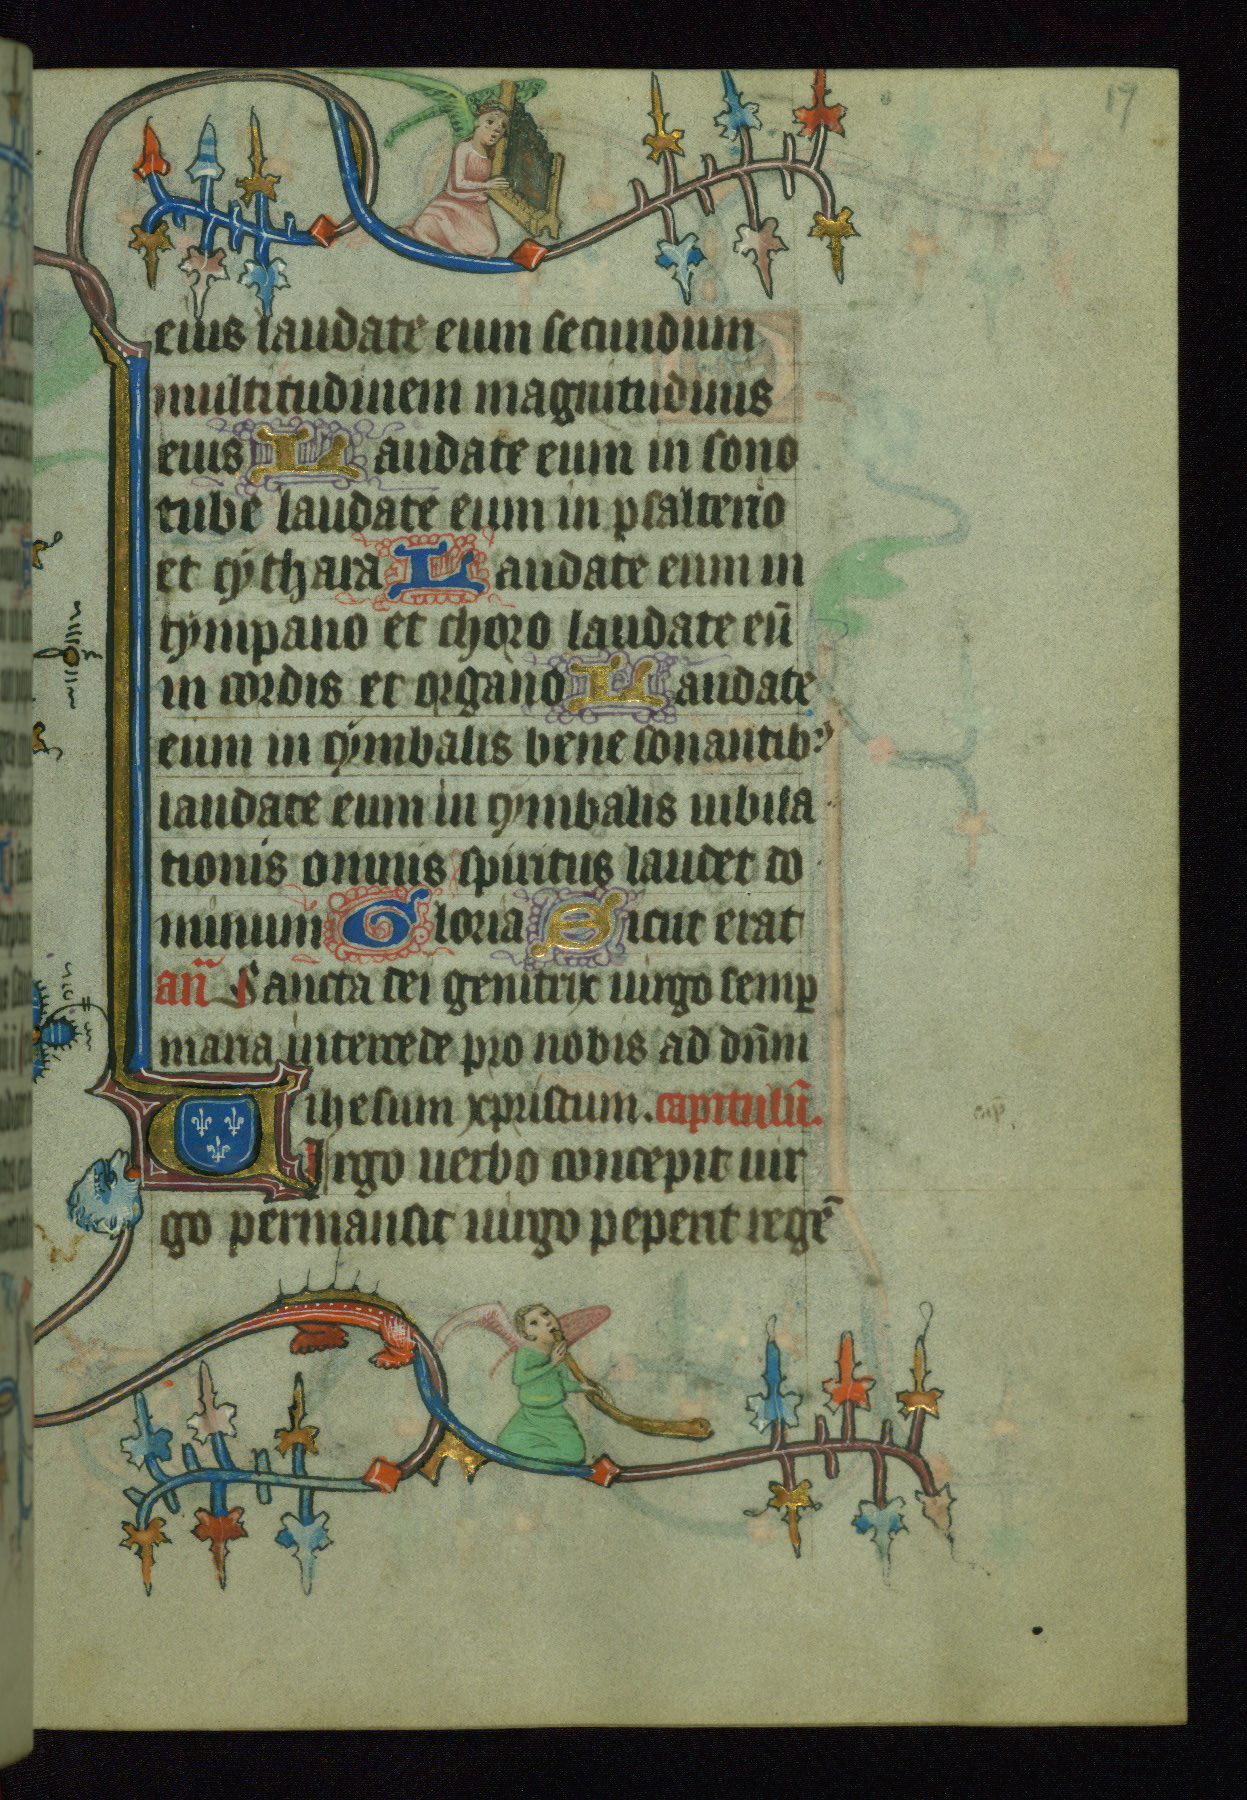 17
eius laudate eum secundum
multitudinem magnitudinis
eius Laudate eum in sono
tube laudate eum in psalterio
et cythara Laudate eum in
tympano et choro laudate eū
in cordis et organo Laudate
eum in cymbalis bene sonantibꝰ
laudate eum in cymbalis iubila
tionis omnis spiritus laudet do
minum Gloria Sicut erat
añ Sancta dei genitrix uirgo semꝑ
maria intercede pro nobis ad dn̄m
ihesum xpristum. capitulū.
Virgo uerbo concepit uir
go permansit uirgo peperit regē
cap̄